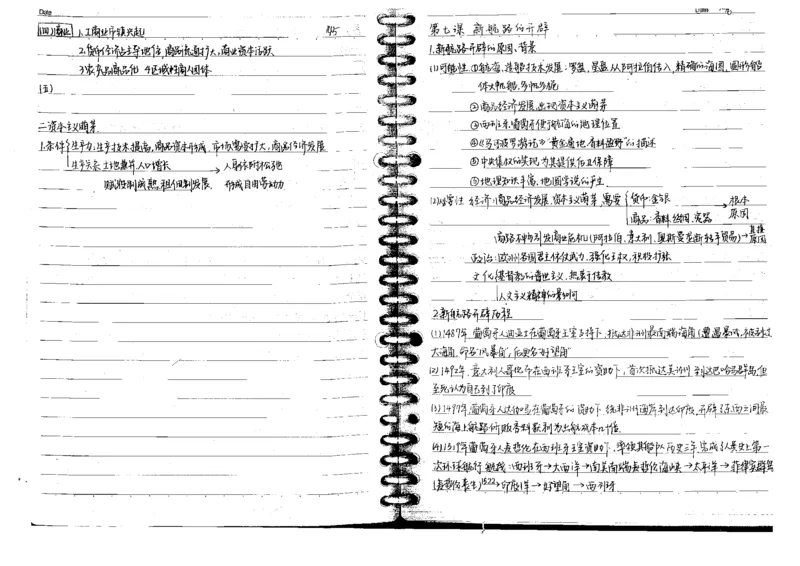 Date
(四)商业 1.工商业市镇兴起 45
2.货币经济占主导地位,商品流通扩大,商业资本活跃
3.农产品商品化 4.区域性商人团体
(五)
二.资本主义萌芽
1.条件 生产力:生产技术提高,商品资本形成,市场需要扩大,商品经济发展
生产关系:土地兼并人口增长 → 人身依附松弛
赋役制成熟,租佃制发展 形成自由劳动力
Date
第七课 新航路的开辟
1.新航路开辟的原因、背景
(1)可能性 ①航海、造船技术发展:罗盘、星盘从阿拉伯传入,精确的海图,圆形船
体大帆船,多桅多舵
②商品经济发展,出现资本主义萌芽
③西班牙葡萄牙便于航海的地理位置
④《马可波罗游记》"黄金遍地香料盈野"的描述
⑤中央集权的实现为其提供后卫保障
⑤地理知识丰富,地圆学说的产生
(2)必要性 经济:商品经济发展,资本主义萌芽,需要 货币:金银 → 根本
商品:香料、丝绸、瓷器 原因
商路不畅引发商业危机(阿拉伯、意大利、奥斯曼垄断转手贸易)→ 直接原因
政治:欧洲各国君主依仗武力,强化王权,积极扩张
文化 基督教的普世主义,热衷于传教
人文主义精神的影响
2.新航路开辟历程
(1)1487年,葡萄牙人迪亚士在葡萄牙王室支持下,抵达非洲最南端海角(遭遇暴风
大海角,命名"风暴角",后更名"好望角"
(2)1492年,意大利人哥伦布在西班牙王室的资助下,首次抵达美洲 到达巴哈马群岛,但
至死认为自己到了印度
(3)1497年,葡萄牙人达伽马在葡萄牙的资助下,绕非洲海岸到达印度,开辟了东西之间最
短的海上航路,所贩香料获利为
(4)1519年葡萄牙人麦哲伦在西班牙王室资助下,率领其船队历史三年,完成人类史上第一
次环球航行 航线:西班牙→大西洋→南美南端麦哲伦海峡→太平洋→菲律宾群岛
(麦哲伦丧生)1522→印度洋→好望角→西班牙